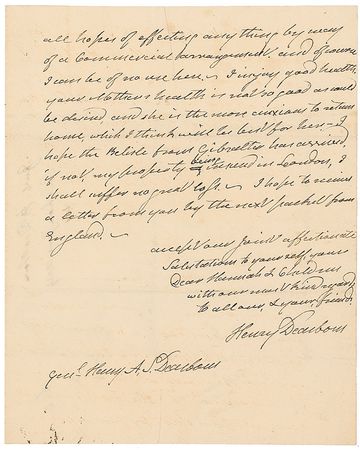 all hopes of effecting any thing by way
of a Commercial arrangement. and of course
I can be of no use here. ~ I injoy good health,
your Mothers health is not so good as could
be desired, and she is the more anxious to return
home, which I think will be best for her. ~ I
hope the Belisle from Gibralter has arrived,
if not, my property being insured in London, I
shall suffer no great loss. ~ I hope to receive
a letter from you by the next packet from
England. ~
accept our joint affectionate
Salutations to yourself, your
Dear Hannah & Children
with our most kind regards
to all our, & your, friends.
Henry Dearborn
Genl. Henry A. S. Dearborn